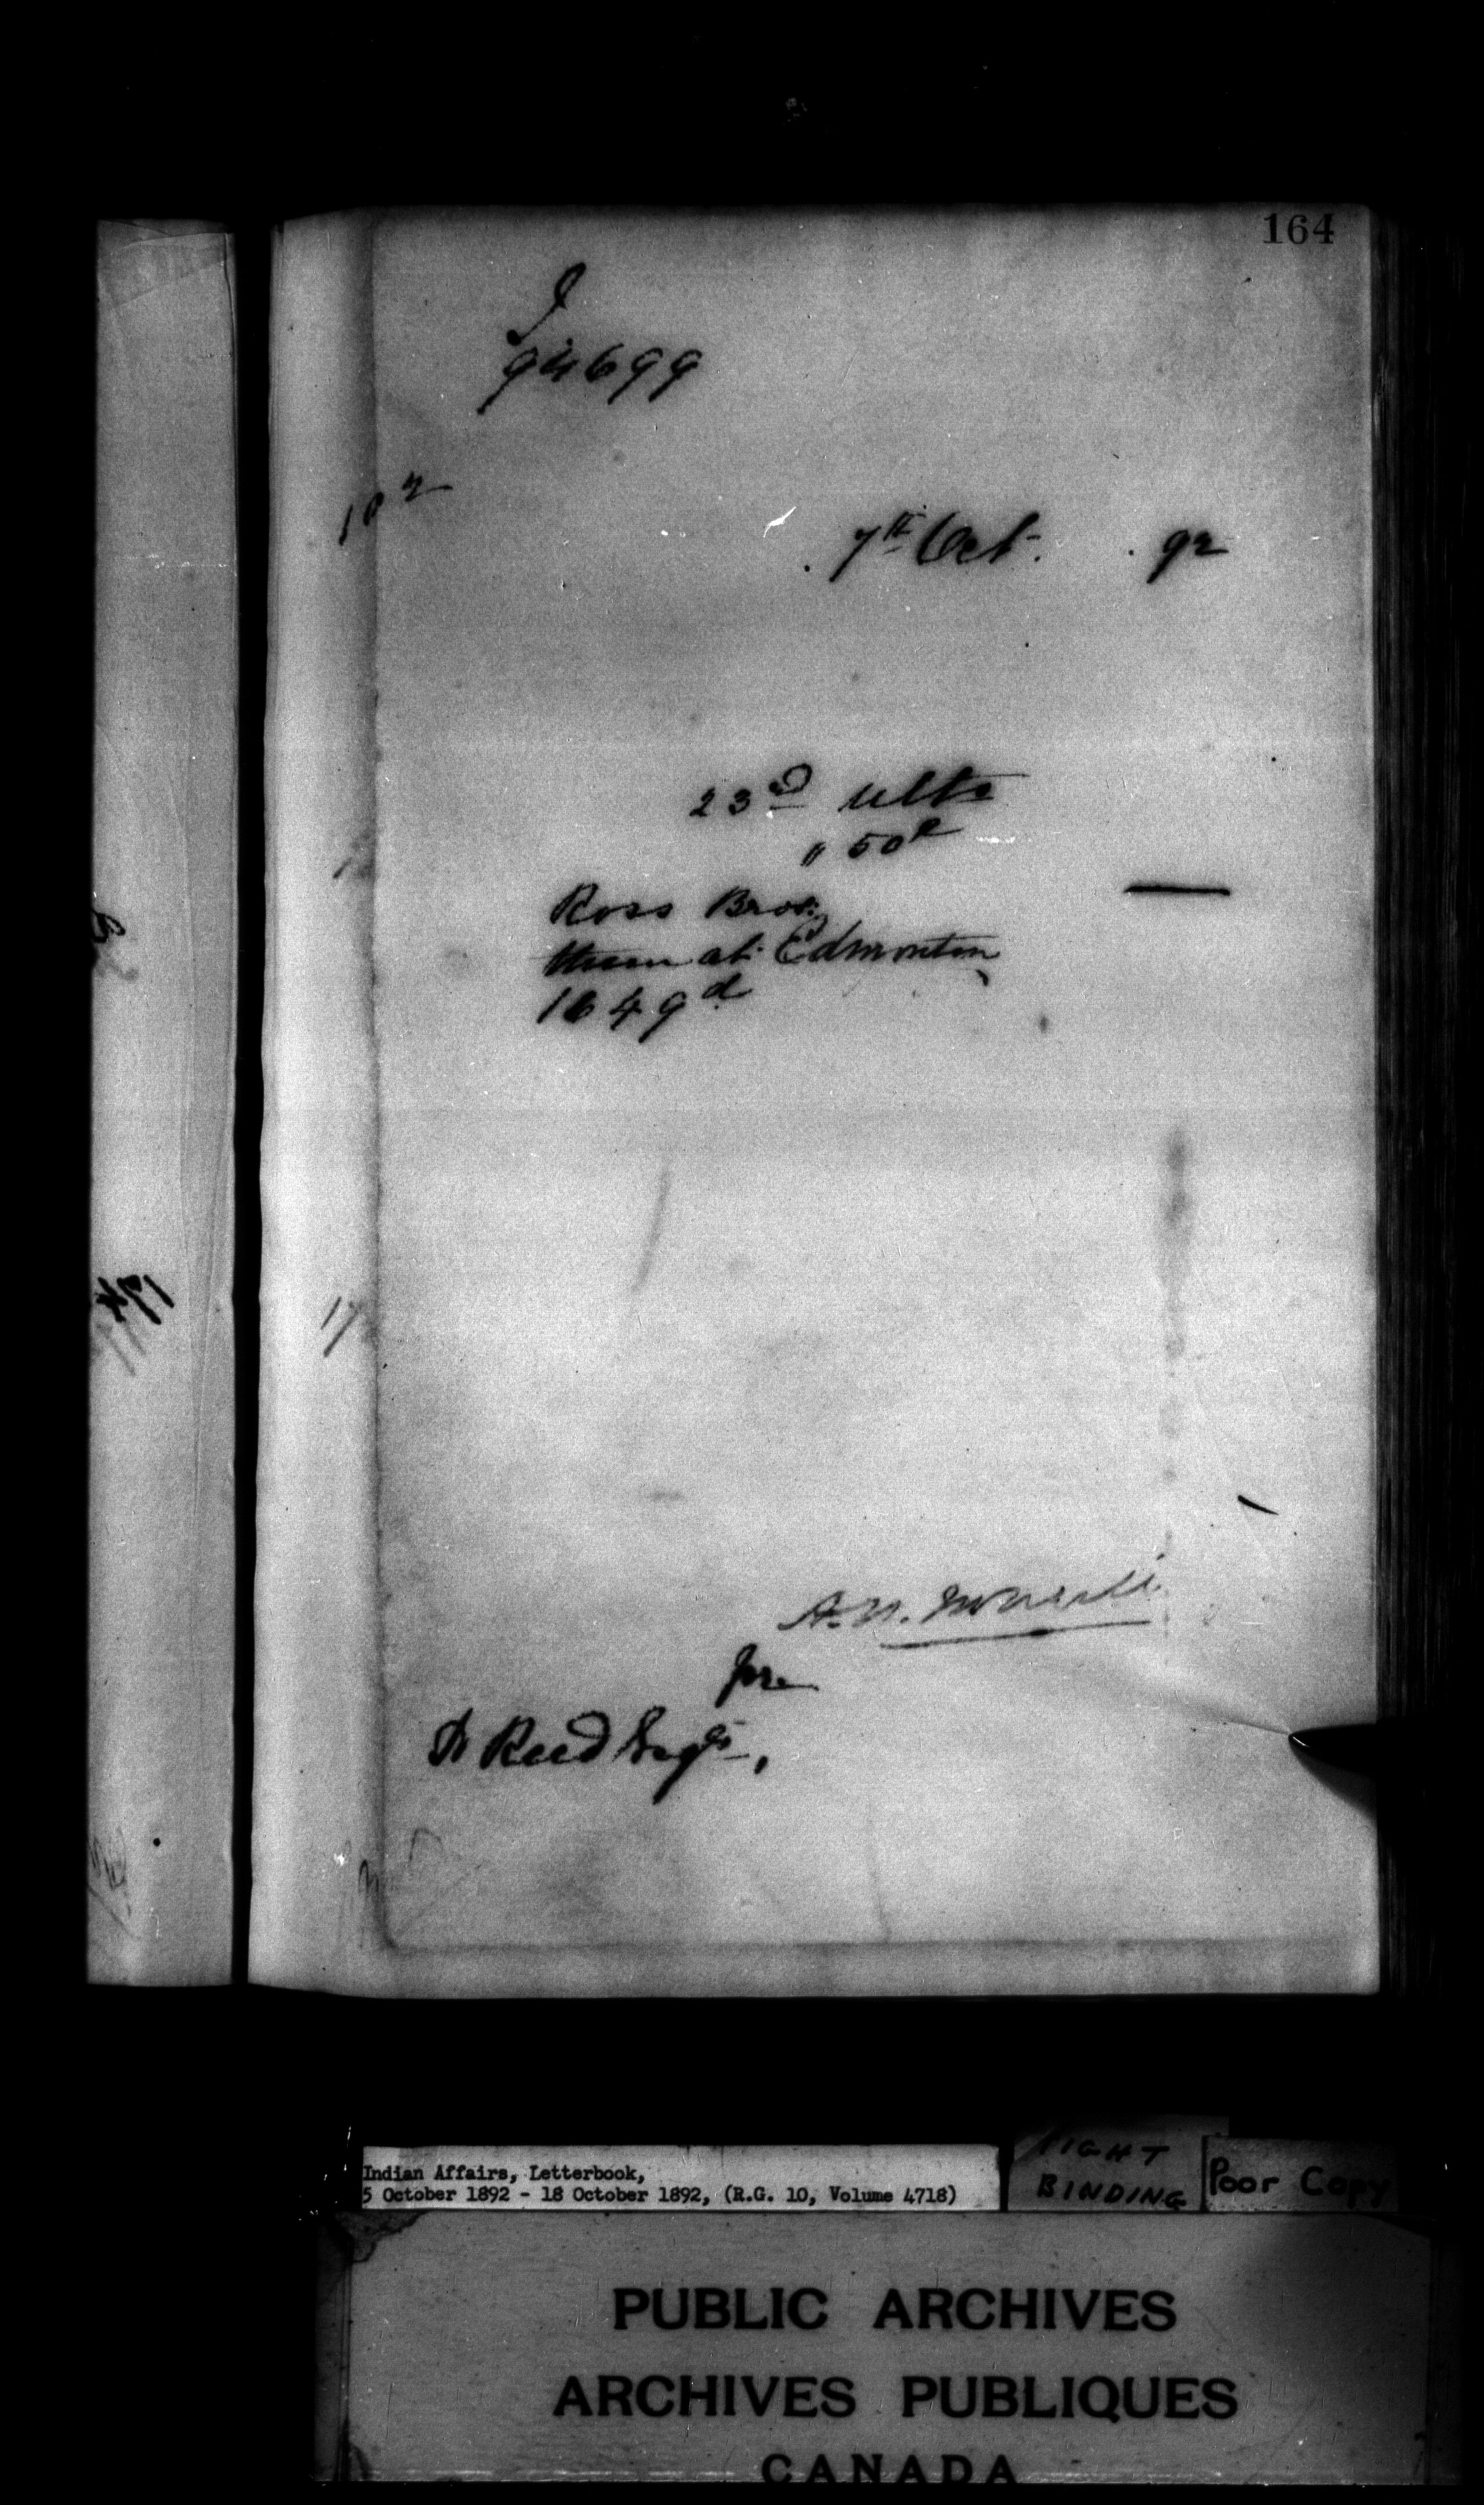 164
94699
7th Oct. 92
23rd Ulto
" 50
Ross Bros.
them at Edmonton
1649d
pre
Reed Esqre,
Indian Affairs, Letterbook,
5 October 1892 - 18 October 1892, (R.G. 10, Volume 4718)
BINDING
Poor Copy
PUBLIC ARCHIVES
ARCHIVES PUBLIQUES
CANADA